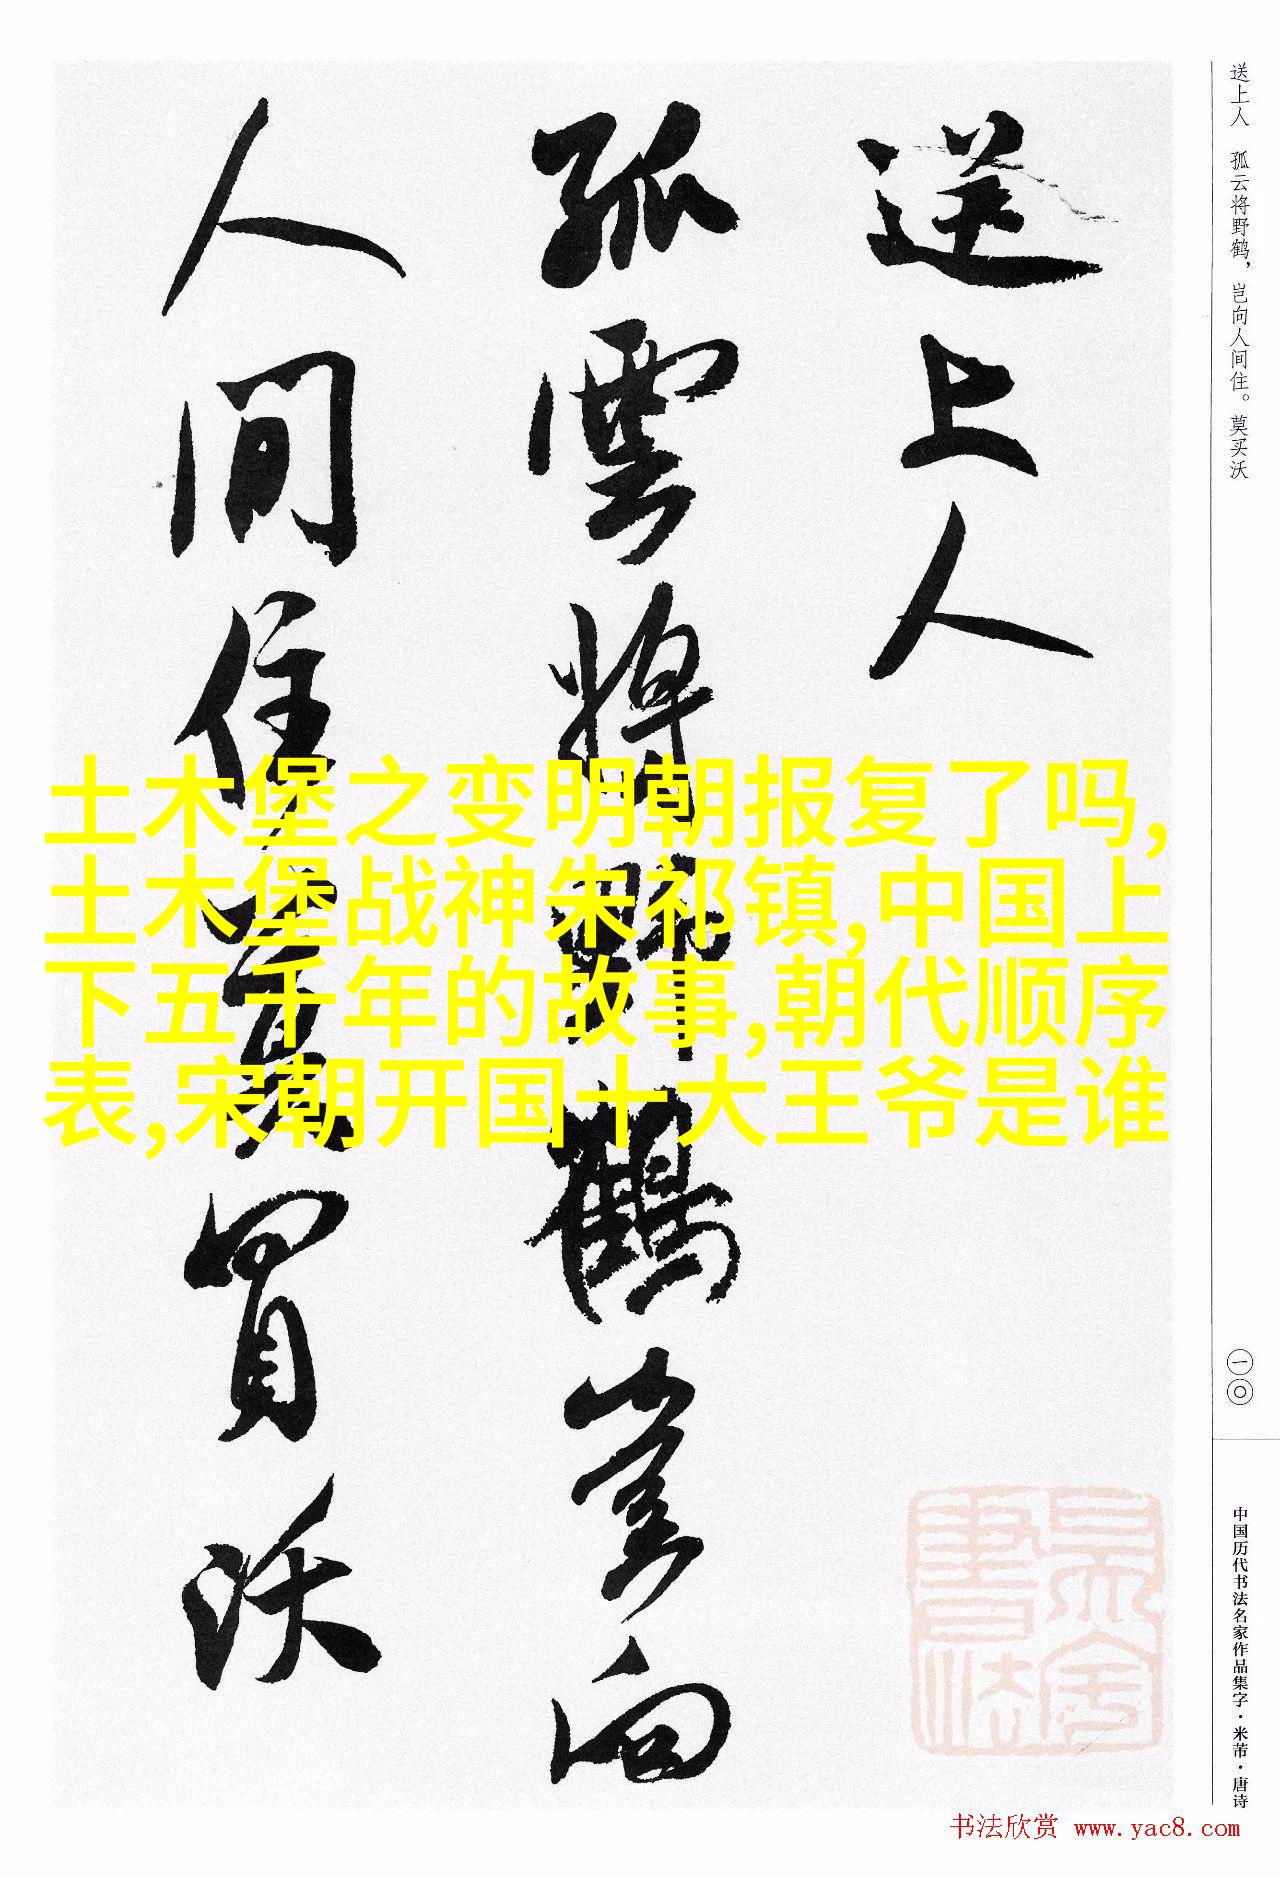 送上人
孤雲將野鶴豈向
人間住莫買沃
土木堡之变明朝报复了吗,
土木堡战神朱祁镇,中国上
下五千年的故事,朝代顺序
表,宋朝开国十大王爷是谁
送上人 孤云将野鹤，岂向人间住。莫买沃
一〇
中国历代书法名家作品集字·米芾·唐诗
书法欣赏 www.yac8.com